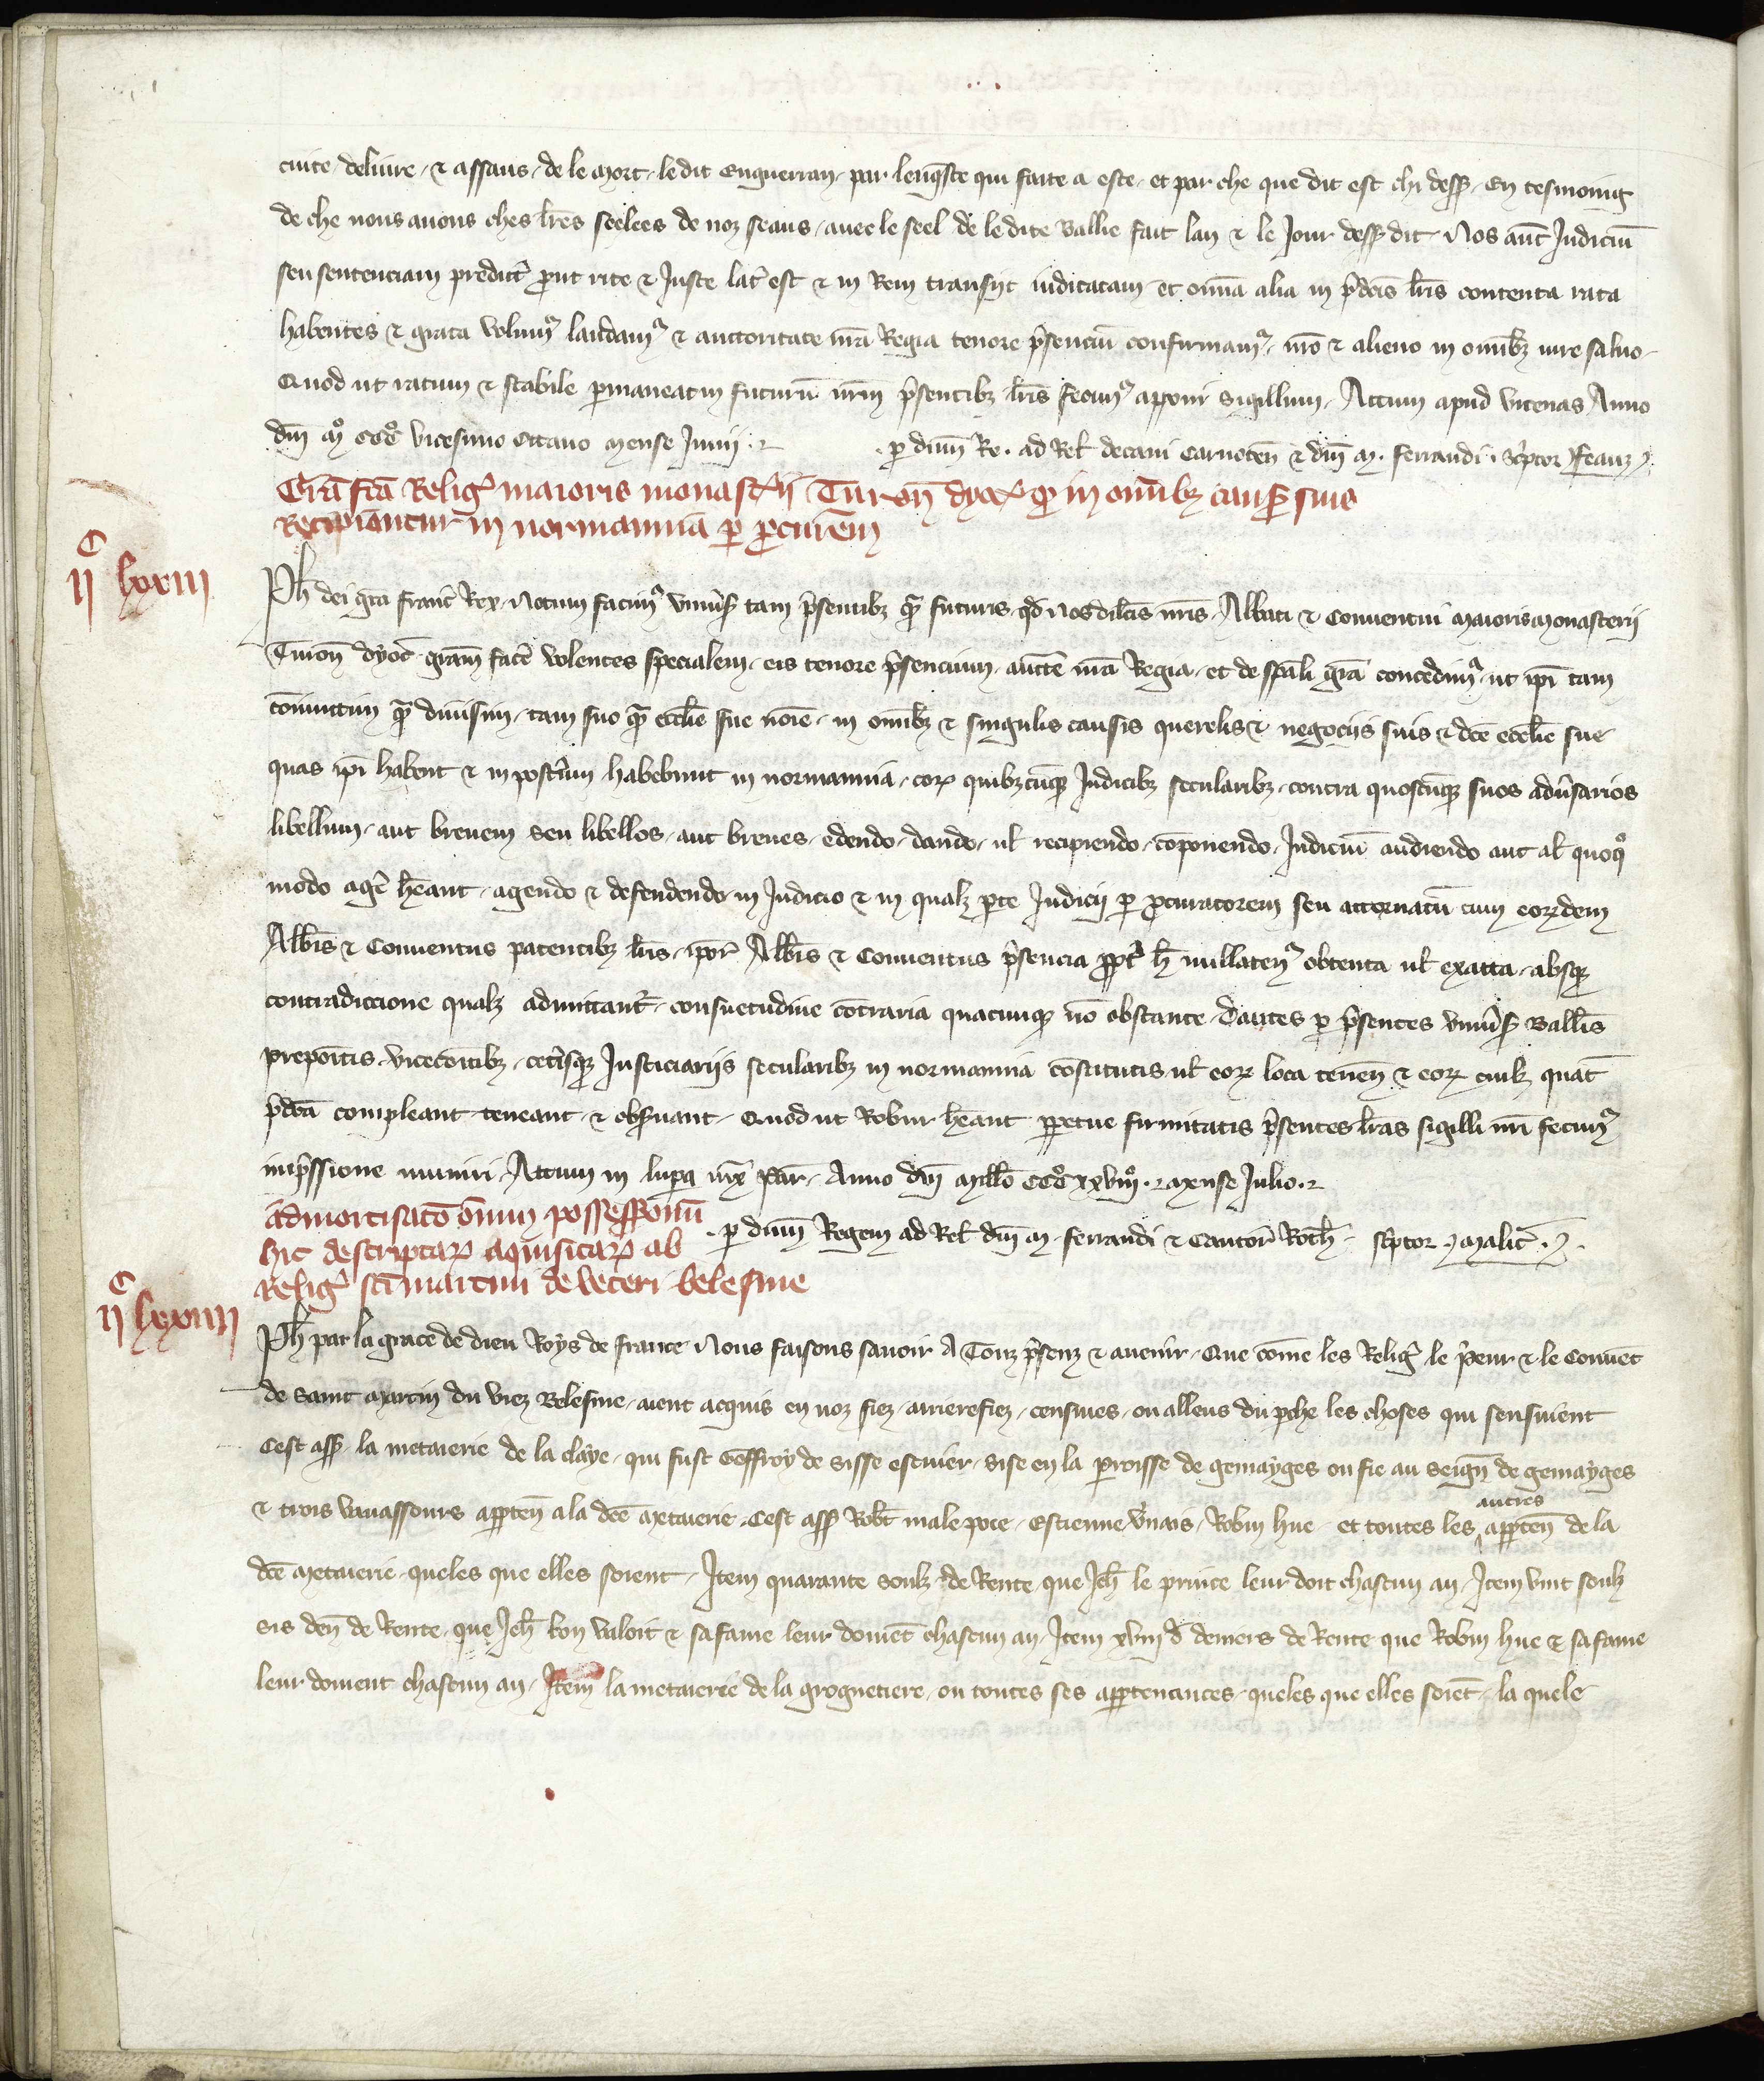 cuite deliure ⁊ assaus de le mort ledit Enguerran par lenq̄ste qui faite a este et par che que dit est chi dess᷒ En tesmoing
de che nous auons ches lr̄es seelees de noz seaus auec le seel de le dite Ballie fait lan ⁊ le Jour dess᷒ dit Nos aut̄ Judiciū
seu sentenciam predict̄ ꝓut rite ⁊ Juste lat̄ est ⁊ in Rem transiit iudicatam et om̄ia alia in p̄dc̄is lr̄is contenta rata
habentes ⁊ grata volum᷒ laudam᷒ ⁊ auctoritate nr̄a Regia tenore p̄senciū confirmam᷒ nr̄o ⁊ alieno in omībꝫ iure saluo
Quod ut ratum ⁊ stabile ꝑmaneat in futurū nr̄m p̄sentibꝫ lr̄is fecim᷒ apponi sigillum Actum apud vicenas Anno
dn̄i mº CCCº vicesimo octauo mense Junii
ꝑ dn̄m Re. ad Rel̄ decani Carnoten̄ ⁊ dn̄i M. ferrandi. Sc̄ptor Jfeauz
Gr̄a fc̄a Relig᷒ maioris monast̄ii Turon̄ dyoc̄ ꝙ in omībꝫ causis suis
Recipiantur in normannia ꝑ ꝓcurem̄
IIC LXXIII
Ph̄ dei gr̄a franc̄ Rex Notum facim᷒ vniūs᷒ tam p̄sentibꝫ q̄ᵃ futuris qd̄ Nos dilc̄is nr̄is Abbati ⁊ Conuentui maioris monasterii
Turon̄ dyoc̄ gr̄am fac̄e volentes specialem eis tenore p̄sencium auct̄e nr̄a Regia et de sp̄ali gr̄a concedim᷒ ut ip̄i tam
coniunctim q̄ᵃ diuisim tam suo q̄ᵃ eccl̄ie sue noīe in omībꝫ ⁊ singulis causis querelis ⁊ negociis suis ⁊ dc̄e eccl̄ie sue
quas ip̄i habent ⁊ in post̄um habebunt in normannia corꝫ quibꝫcūqꝫ Judicibꝫ secularibꝫ contra quoscūqꝫ suos adūsarios
libellum aut breuem seu libellos aut breues edendo dando ul̄ recipiendo cōponendo Judiciū audiendo aut al̄ quoqº
modo aḡe hēant agendo ⁊ defendendo in Judicio ⁊ in qualꝫ ꝑte Judicii ꝑ ꝓcuratorem seu attornatū cum eorꝫdem
Abb̄is ⁊ Conuentus patentibꝫ lr̄is ipor̄ Abb̄is ⁊ Conuentus p̄sencia ꝓpt̄ h̄ nullaten᷒ obtenta ul̄ exacta absqꝫ
contradiccione qualꝫ admittant᷒ consuetudine cōtraria quacunqꝫ nō obstante Dantes ꝑ p̄sentes vniūs᷒ Balliīs
prepoītis vicecoītibꝫ cet̄isqꝫ Justiciariis secularibꝫ in normannia cōstitutis ul̄ eorꝫ loca tenen̄ ⁊ eorꝫ cuilꝫ quat̄
p̄dc̄a compleant teneant ⁊ obs̄uant Quod ut Robur hēant ꝑpetue firmitatis p̄sentes lr̄as sigilli nr̄i fecim᷒
imp̄ssione muniri Actum in lupa iux̄ Par̄ Anno dn̄i mill̄o CCCº xxviijº mense Julio
Admortisacō om̄ium possessionū
hic descriptarꝫ aquisitarꝫ ab
Relig᷒ sc̄i martini de veteri belesme
. ꝑ dn̄m Regem ad Rel̄ dn̄i M. ferrandi ⁊ Cantor̄ Roth̄ Sc̄ptor Malic̄
IIC LXXIIII
Ph̄ par la grace de dieu Roys de france Nous faisons sauoir A Touz p̄senz ⁊ auenir Que cōme les Relig᷒ le p̄eur ⁊ le Conuēt
de saint Martin du viez Belesme aient acquis en noz fiez arrierefiez censiues ou alleus du perche les choses qui sensuient
Cest ass᷒ la metaierie de la claye qui fust Geffroy de Sisse escuier sise en la ꝑroisse de gemayges ou fie au seign̄ de gemayges
⁊ trois vauassours appten̄ a la dc̄e metaierie Cest ass᷒ Robt̄ malepoce Estienne v̄nais Robin hue et toutes les autres appten̄ de la
dc̄e metaierie queles que elles soient Item quarante soulz de Rente que Jeh̄ le prince leur doit chascun an Item vint soulz
sis den̄ de Rente que Jeh̄ lou valoit ⁊ sa fame leur doiuēt chascun an Item xviij d̄ deniers de Rente que Robin hue ⁊ sa fame
leur doiuent chascun an Item la metaierie de la grognetiere ou toutes ses apptenances queles que elles soiēt la quele